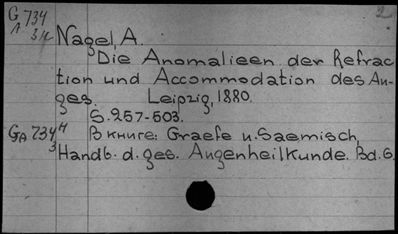 G 734 2
Nagel, A.
Die Anomalieen der Refrac
tion und Accommodation des Au-
ges. Leipzig, 1880.
S. 257-503.
GA 734 В книге: Graefe u. Saemisch,
Handb. d. ges. Augenheilkunde. Bd. 6.